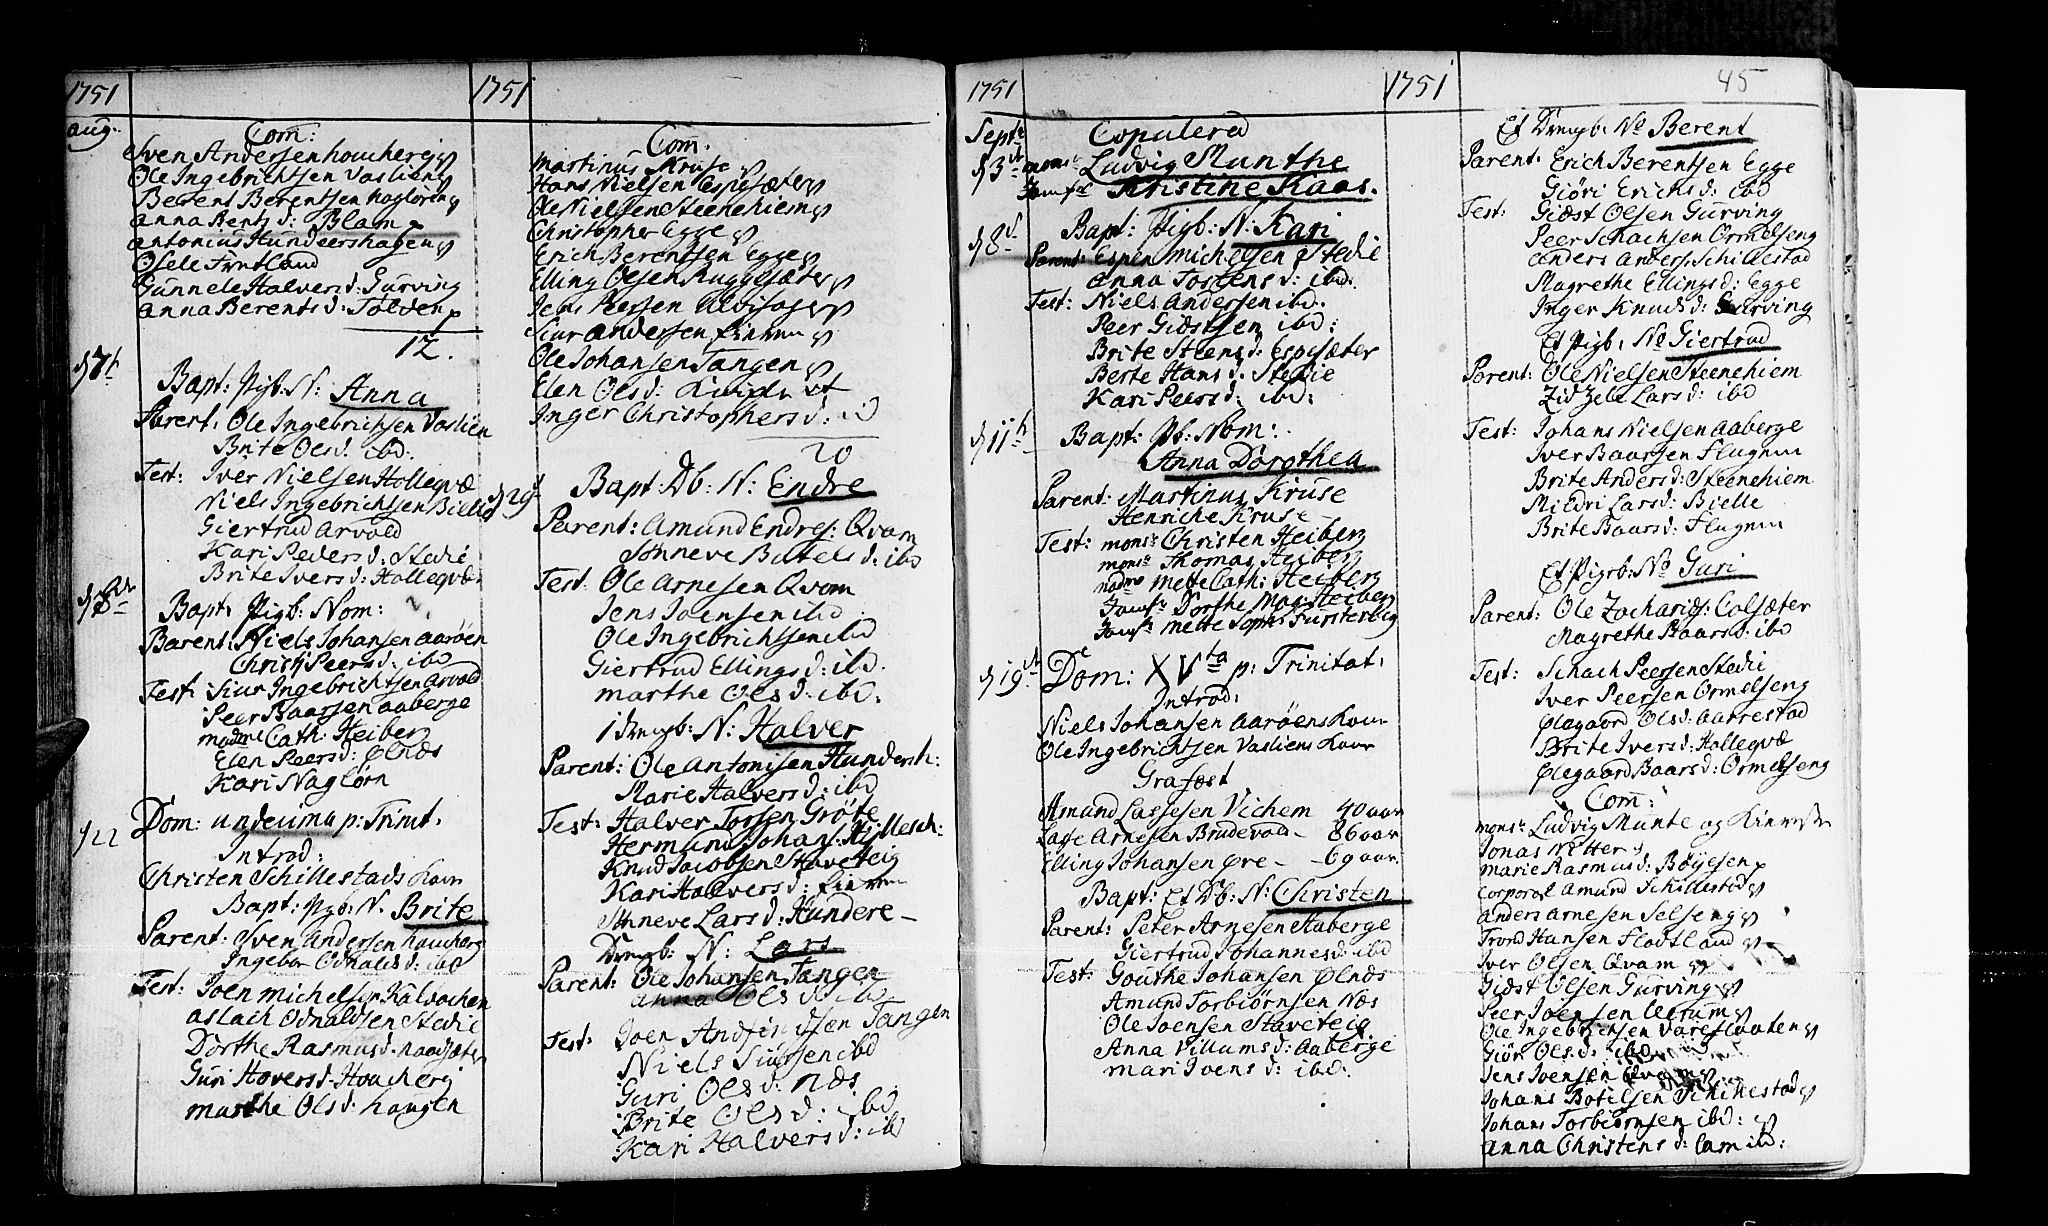 1751
aug.
Com:
Sven Andersen houcherg
Ole Ingebrichtsen Vaslien
Berent Berentsen Nagløren
Anna Bents d: Blam
Antonius Hundeershagen
Osele Frntland
Gunnele Halvers d: Gurving
Anna Berents d: Tølden
12.
Bapt: Pigb: N: Anna
Parent: Ole Ingebrichtsen Vaslien
Brite Ols d: ibd.
Test: Iver Nielsen Holleqvæ
Niels Ingebrichtsen Bielle
Giertrud Arvold
Kari Peders d: Stedie
Brite Ivers d: Hollegvæ
Bapt: Pigb: Nom:
Barent: Niels Johansen Aarøen
Christi Peers d: ibd
Test: Siur Ingebrichtsen Arvold
Peer Baarsen Aaberge
madme Cath: Heiberg
Elen Peers d: Ølnæs
Kari Nagløen
d 22 Dom: undecima p: Trinit:
Introd:
Christen Schillestads Kone
Bapt: Pigb: N. Brite
Parent: Sven Andersen houcherg
Ingebor Odnalds d: ibd
Test: Joen Michelsen Kalvachen
Aslach Odnaldsen Stedie
Dorthe Rasmus d: Naadsæter
Guri Hovers d: Houcherg
Marthe Ols d: haugen
1751
Com:
Martinus Kruse
Hans Nielsen Espesæter
Ole Nielsen Steenehiem
Christopher Egge
Erich Berentsen Egge
Elling Olsen Ruggesæter
Jens Peersen
Siur Andersen
Ole Johansen Tangen
Elen Ols d:
Inger Christophers d: ibd
20
d 29 Bapt: Db: N: Endre
Parent: Amund Endres: Qvam
Sønneve Botels d: ibd
Test: Ole Arnesen Qvam
Jens Joensen ibd
Ole Ingebrichtsen ibd
Giertrud Ellings d: ibd.
Marthe Ols d: ibd.
1 Drengb: N: Halver
Parent: Ole Antonisen Hundersh:
Marie Halvers d: ibd
Test: Halver Torsen Grøte
Hermund Johans: Hillesch:
Knud Jacobsen Staveteig
Kari Halvers d:
Sønneve Lars d: Hundere
Drengb: N: Lars
Parent: Ole Johansen Tangen
Anna Ols d: ibd
Test: Joen Andfindsen Tangen
Niels Siursen ibd
Guri Ols d: Næs
Brite Ols d: ibd
Kari Halvers d: ibd
1751
Septr
Copulera
d 3 monsr Ludvig Munthe
Jomfr Kristine Kaas.
d 8 Bapt: Pigb: N: Kari
Parent: Espen Michelsen Stedie
Anna Tostens d: ibd:
Test: Niels Andersen ibd:
Peer Giæstsen ibd:
Brite Steens d: Espesæter
Berte Hans d: Stedie
Kari Peers d: ibd:
d 11 Bapt: Pb: Nom:
Anna Dorothea
Parent: Martinus Kruse
Henriche Kruse
Test: monsr Christen Heiberg
monsr Thomas Heiberg
madme Mette Cath: Heiberg
Jomfr Dorthe Mag: Heiberg
Jomfr Mette Soph: Fursterberg
d 19 Dom: XVta p: Trinitat:
Introd:
Niels Johansen Aarøens Kone
Ole Ingebrichtsen Vasliens Kone
Grafæst
Amund Lassesen Vichem 40 aar
Lasse Arnesen Brudevold 86 aar
Elling Johansen Øre 69 aar
Bapt: Et Db: N: Christen
Parent: Peter Arnesen Aaberge
Giertrud Johannes d: ibd
Test: Gouthe Johansen Ølnæs
Amund Torbiørnsen Næs
Ole Joensen Staveteig
Anna Villums d: Aaberge
Mari Joens d: ibd:
1751
45
Et Drengb: No Berent
Parent: Erich Berentsen Egge
Giøri Erichs d: ibd
Test: Giæst Olsen Gurving
Peer Schachsen Ormelseng
Anders Anders: Schillestad
Magrethe Ellings d: Egge
Inger Knuds d: Gurving
Et Pigb: No Giertrud
Parent: Ole Nielsen Steenehiem
Zidzele Lars d: ibd
Test: Johans Nielsen Aaberge
Iver Baarsen Flugum
Brite Anders d: Steenehiem
Mildri Lars d: Bielle
Brite Baars d: Flugum
Et Pigb: No Guri
Parent: Ole Zacharies: Colsæter
Magrethe Baars d: ibd
Test: Schach Peersen Stedie
Iver Peersen Ormelseng
Ølegaard Ols d: Aarrestad
Brite Ivers d: Hollegvæ
Ølegaard Baars d: Ormelseng
Com:
monsr Ludvig Munte og
Jonas Nitter
Marie Rasmus d: Bøyesen
Corporal Amund Schillestad
Anders Arnesen Selseng
Trond Hansen Flodtland
Iver Olsen Qvam
Giæst Olsen Gurving
Peer Joensen
Ole Ingebrichtsen Vareflaaten
Giøri Ols d: ibd
Jens Joensen Qvam
Johans Botelsen Schillestad
Johans Torbiørnsen ibd:
Anna Christens d: Cam ibd: